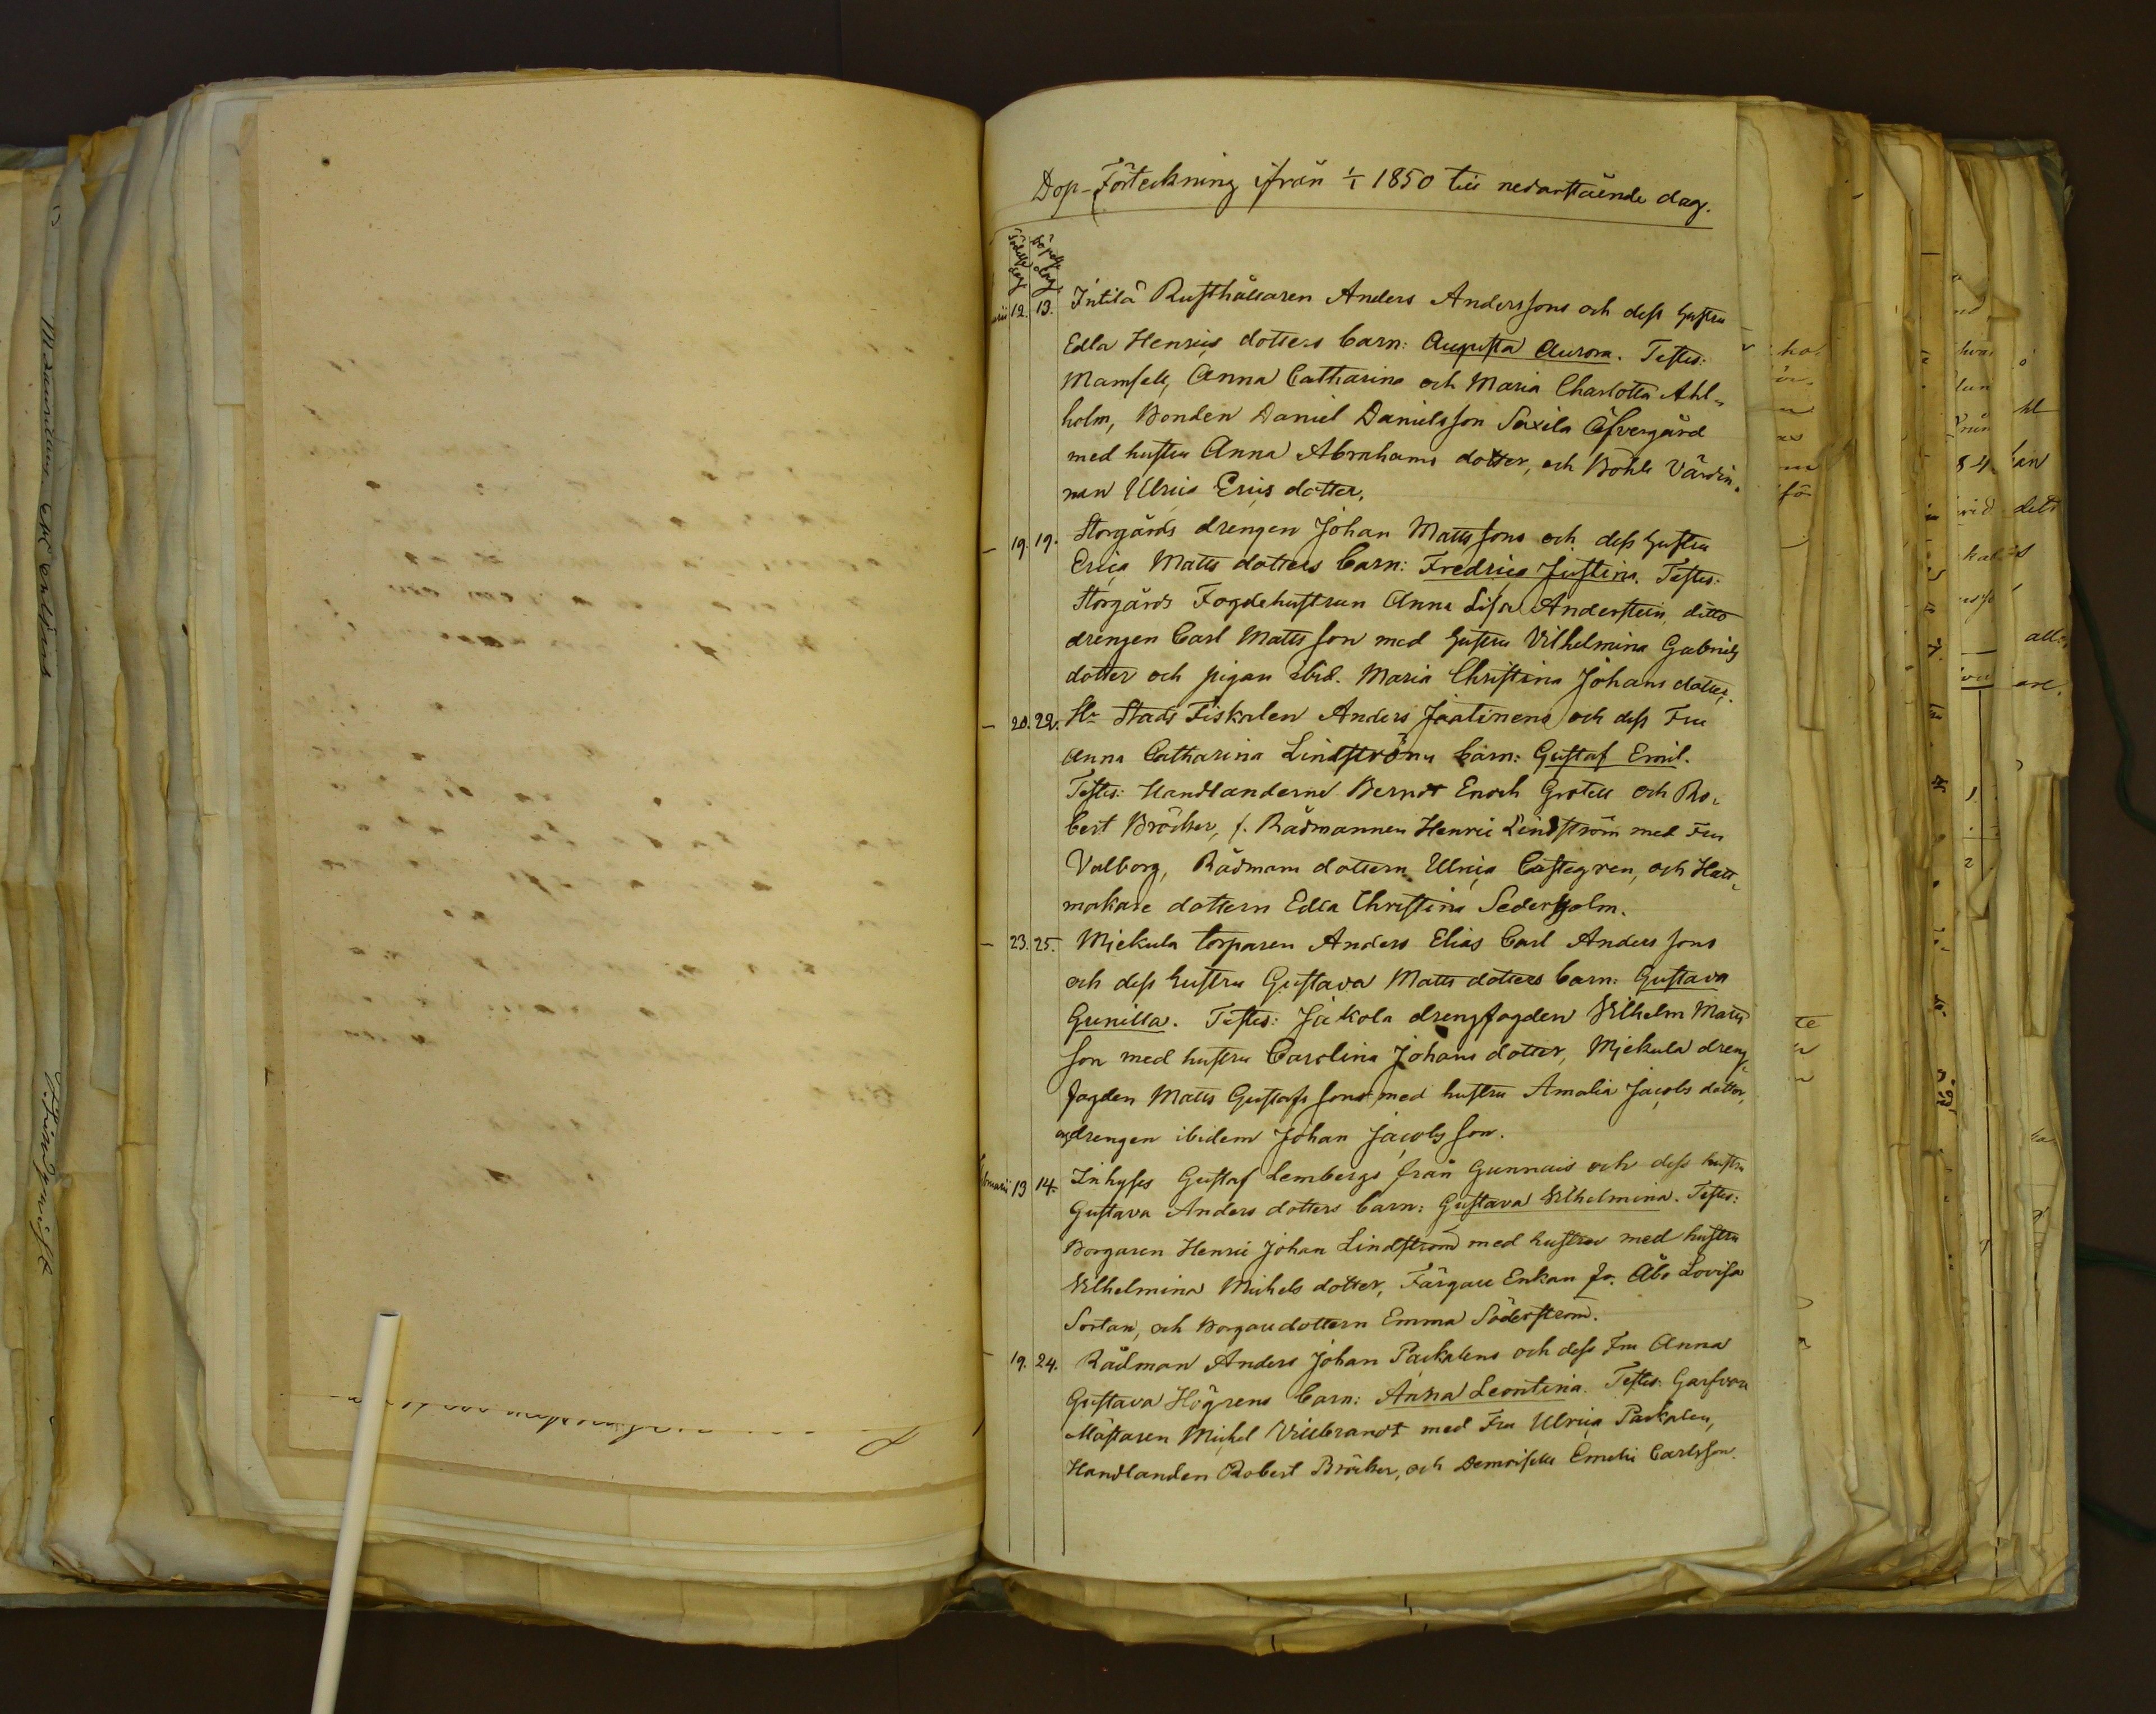 Dop-Förteckning ifrån 1/1 1850 till nedanstående dag.
Födelse dag. Döpelse dag.
12. 13. Intilä Rusthållaren Anders Anderssons och dess hustru
Edla Henrics dotters barn: Augusta Aurora. Testes:
Mamsell, Anna Catharina och Maria Charlotta Ahl-
holm, Bonden Daniel Danielsson Saxila Öfvergård
med hustru Anna Abrahams dotter, och Böhle Värdin-
nan Ulrica Erics dotter.
– 19. 19. Storgårds drengen Johan Mattssons och dess hustru
Erica Matts dotters barn: Fredrica Justina. Testes:
Storgårds Fogdehustrun Anna Lisa Anderstein, ditto
drengen Carl Mattsson med hustru Vilhelmina Gabriels
dotter och pigan ibid. Maria Christina Johans dotter.
– 20. 22. Hr Stads Fiskalen Anders Jaatinens och dess Fru
Anna Catharina Lindströms barn: Gustaf Emil.
Testes: Handlanderne Berndt Enoch Grotell och Ro-
bert Bröcker, f. Rådmannen Henric Lindström med Fru
Valborg, Rådmans dottern Ulrica Castegren, och Hatt-
makare dottern Edla Christina Sederholm.
– 23. 25. Mjekula torparen Anders Elias Carl Anderssons
och dess hustru Gustava Matts dotters barn: Gustava
Gunilla. Testes: Jackola drengfogden Vilhelm Matts
son med hustru Carolina Johans dotter, Mjekula dreng-
fogden Matts Gustafssons med hustru Amalia Jacobs dotter,
och drengen ibidem Johan Jacobsson.
Februarii 13 14. Inhyses Gustaf Lembergs från Gunnais och dess hustru
Gustava Anders dotters barn: Gustava Vilhelmina. Testes:
Borgaren Henric Johan Lindström med hustru med hustru
Vilhelmina Michels dotter, Färgare Enkan fr. Åbo Lovisa
Sortan, och Borgaredottern Emma Söderström.
– 19. 24. Rådman Anders Johan Packalens och dess Fru Anna
Gustava Högrens barn: Anna Leontina. Testes: Garfvare
Mästaren Michel Villebrandt med Fru Ulrica Packalen,
Handlanden Robert Bröcker, och Demoiselle Emelie Carlsson.